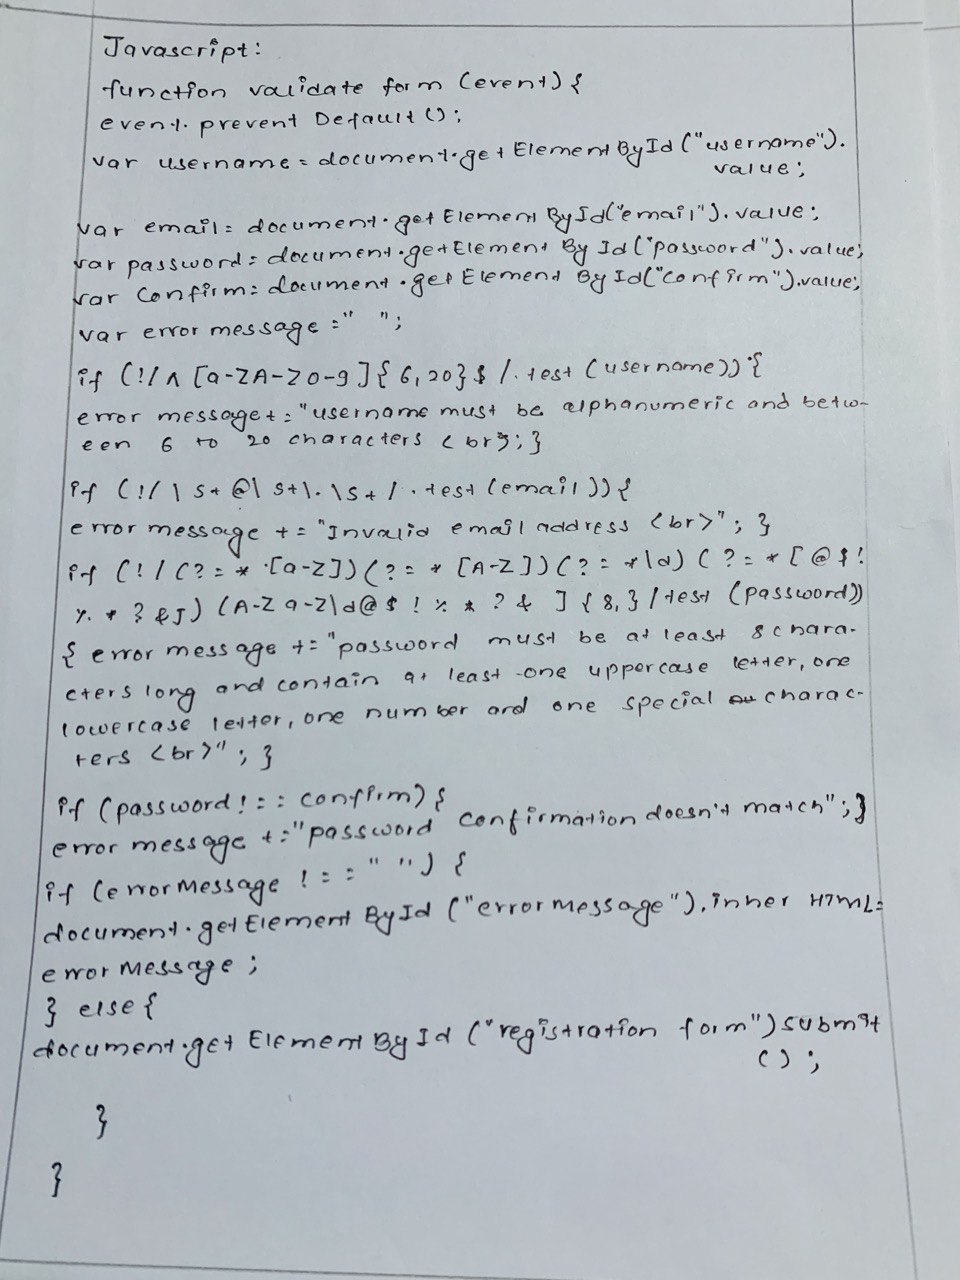 Javascript:
function validate form (event) {
event. prevent Default ();
var username = document.get Element By Id ("username").
value;
var email = document.get Element By Id("email"). value;
var password = document.get Element By Id ("password"). value;
var Confirm = document.get Element By Id("confirm").value;
var error message = " ";
if (!/^ [a-ZA-Z0-9]{6,20}$ /. test (username)) {
error message += "username must be alphanumeric and betw-
een 6 to 20 characters <br>; }
if (!/ \ S+ @\ S+\. \S+ / . test (email)) {
error message += "Invalid email address <br>"; }
if (! / (?= * [a-Z]) (?= * [A-Z]) (?= *\d) (?= * [@$!
%. * ? &]) (A-Z a-Z\d@$ ! % * ? & ] {8,} / test (password))
{ error message += "password must be at least 8 chara-
cters long and contain at least one uppercase letter, one
lowercase letter, one number and one special charac-
ters <br>"; }
if (password !== confirm) {
error message += "password confirmation doesn't match"; }
if (error Message !== " ") {
document.get Element By Id ("error message"). inner HTML =
error Message ;
} else {
document.get Element By Id ("registration form") submit
();
}
}